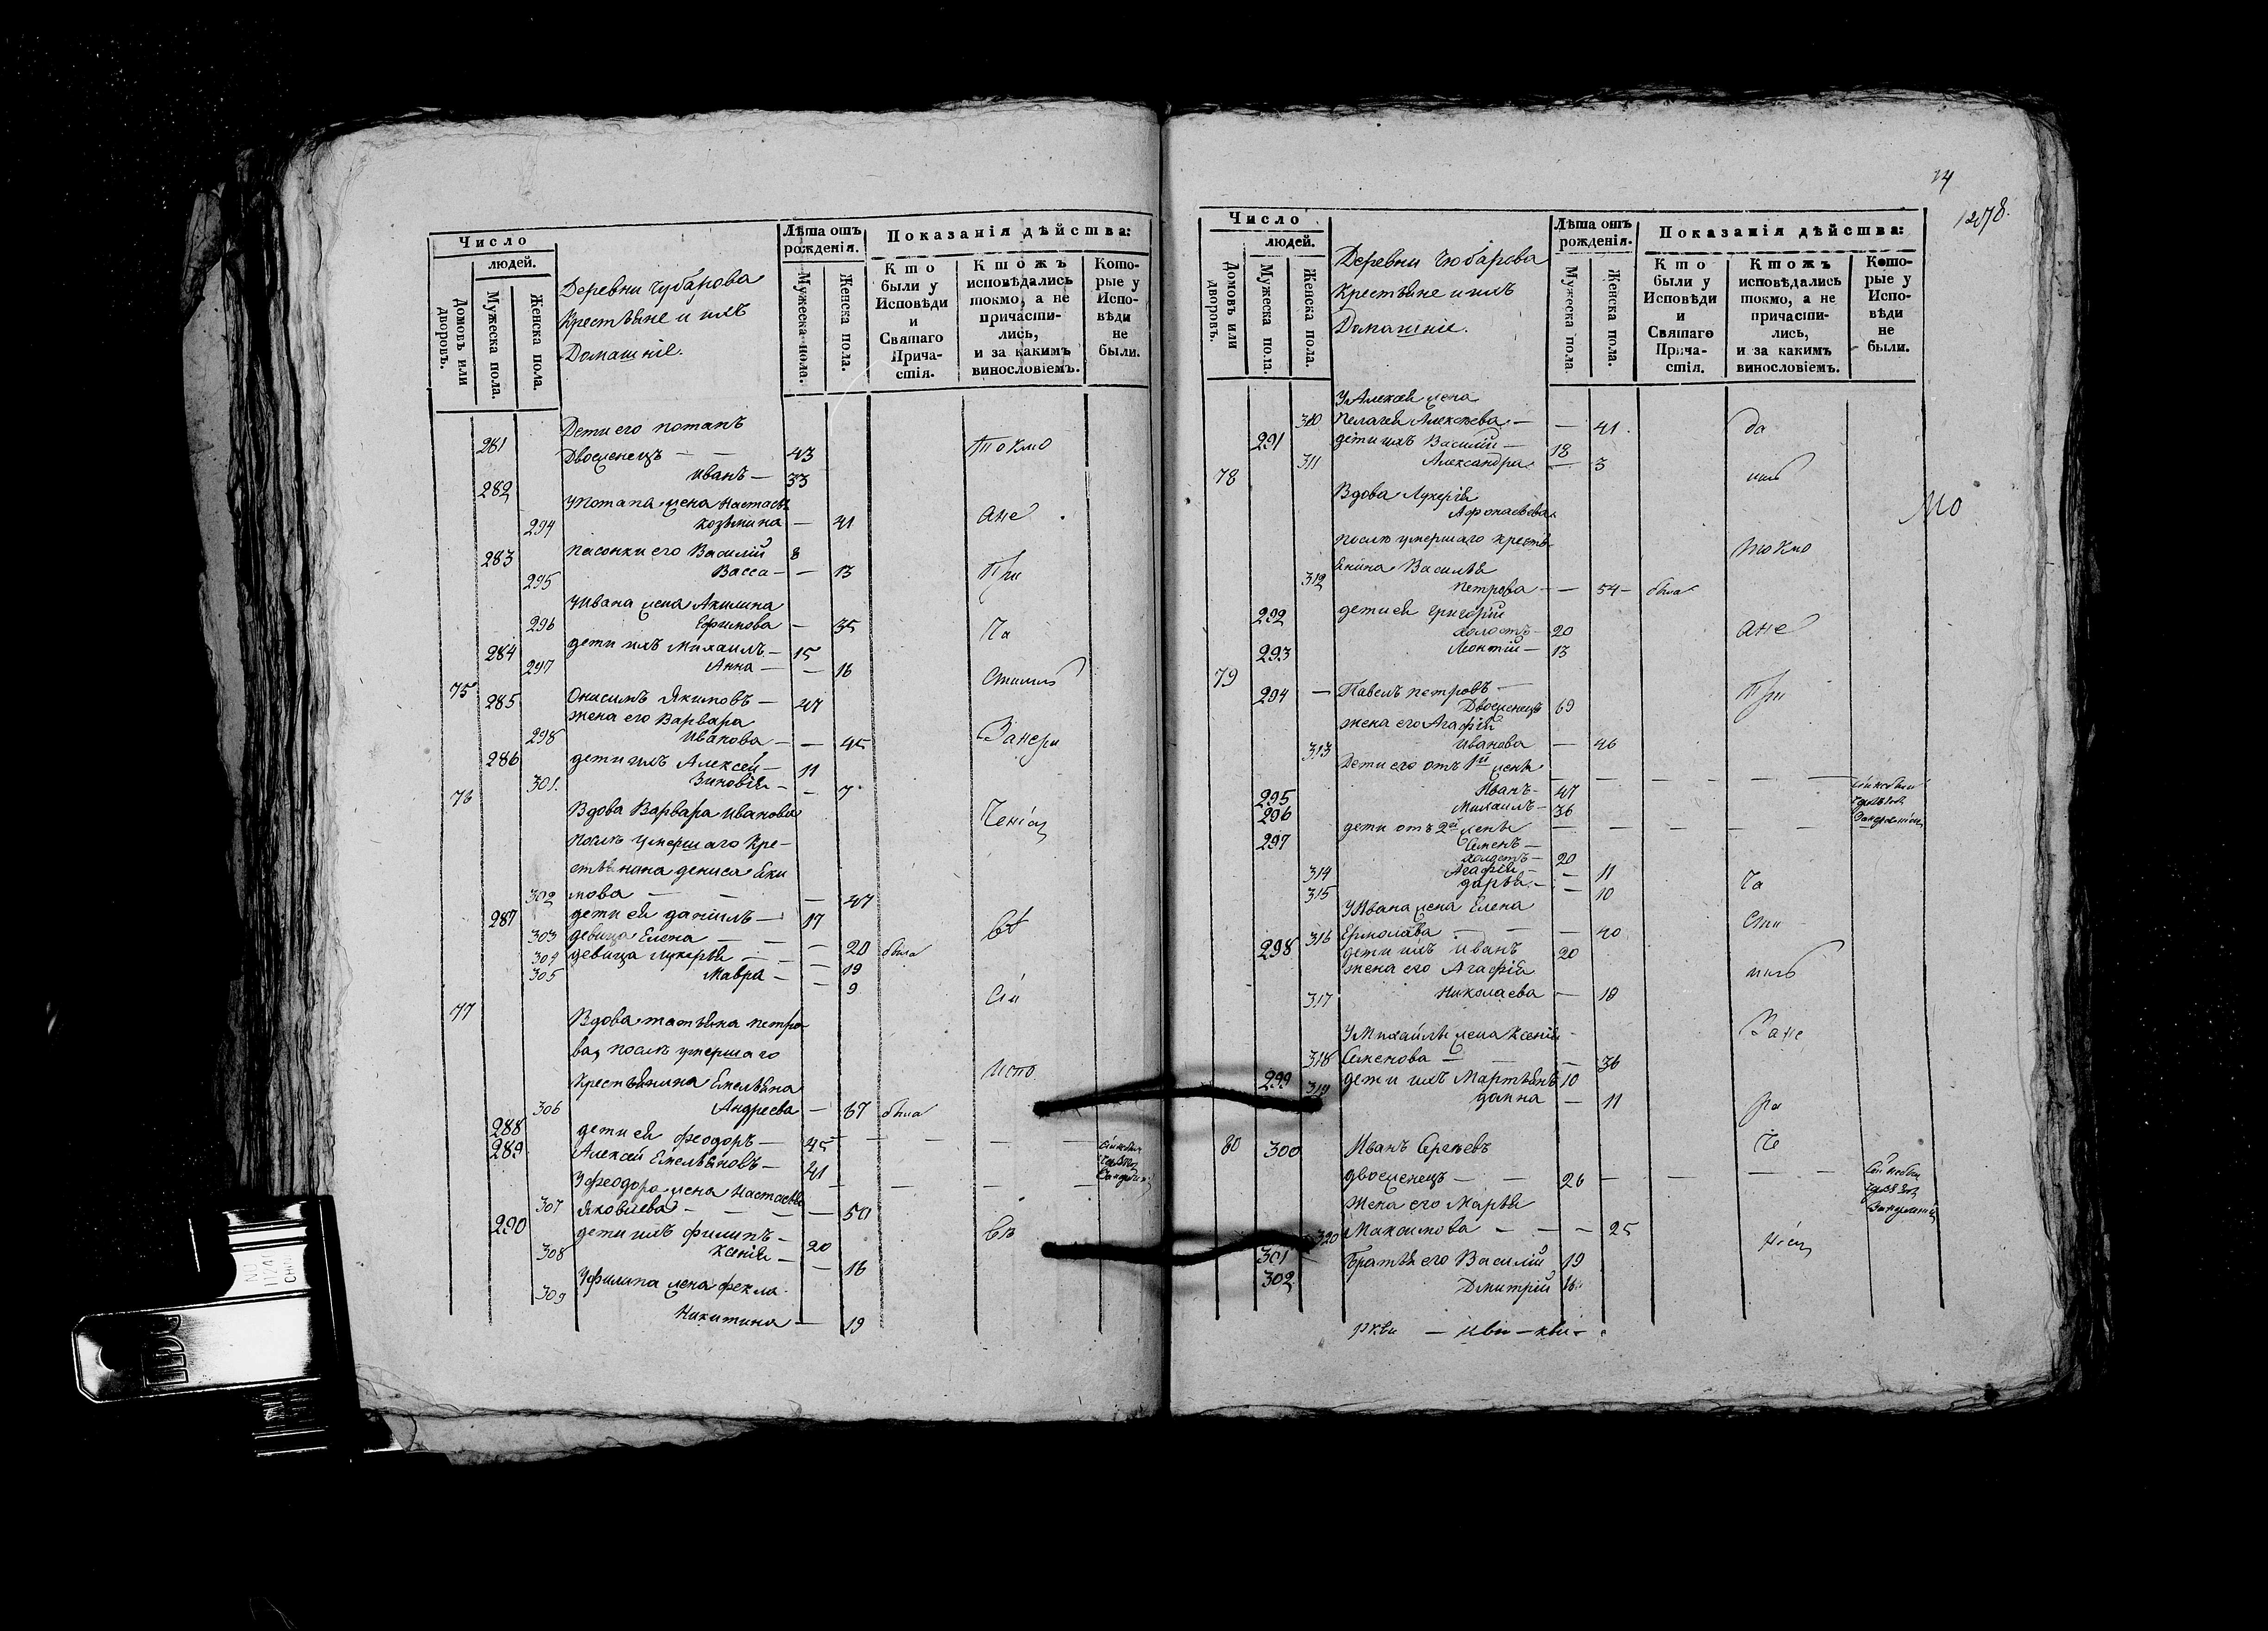 Число
людей.
Домовъ или дворовъ.
Мужеска пола.
Женска пола.
Деревни Чубарова
Крестьяне и ихъ
Домашніе.
Лѣта отъ рожденія.
Мужеска пола.
Женска пола.
Показанія дѣйства:
Кто были у Исповѣди и Святаго Причастія.
Ктожъ исповѣдались токмо, а не причастились, и за какимъ винословіемъ.
Которые у Исповѣди не были.
Дети его потапъ
281 Двоеженецъ — — 43 Токмо
282 иванъ — 33
У потапа жена Настасья
294 козьмина — 41 ане
283 пасонки его Василій 8
295 Васса — — 13 При
У ивана жена Акилина
296 Ефимова — 35 Ча
284 дети ихъ Михаилъ — 15
297 Анна — — 16 стились
75 285 Онисимъ Якимовъ — 47
жена его Варвара
298 иванова — — 45 Занера
286 дети ихъ Алексей — 11
301. Зиновія — — 7
76 Вдова Варвара иванова
после умершаго Кре- Ченіем
стьянина дениса Яки
302 мова — — — 47
287 дети ея даніилъ — 17
303 девица Елена — — — 20 была
304 девица лукерья — — — 19
305 Мавра — — 9 сія
77 Вдова татьяна петро
ва, после умершаго
Крестьянина Емельяна испо
306 Андреева — 67 была
288 дети ея феодоръ — 45
289 Алексей Емельяновъ — 41
У феодора жена Настасья
307 Яковлева — — — 50
290 дети ихъ филипъ — 20
308 ксенія — — 16
309 У филипа жена фекла
Никитина — 19
14
1278.
Число
людей.
Домовъ или дворовъ.
Мужеска пола.
Женска пола.
Деревни Чюбарова
Крестьяне и ихъ
Домашніе.
Лѣта отъ рожденія.
Мужеска пола.
Женска пола.
Показанія дѣйства:
Кто были у Исповѣди и Святаго Причастія.
Ктожъ исповѣдались токмо, а не причастились, и за какимъ винословіемъ.
Которые у Исповѣди не были.
У Алексея жена
310 Пелагея Алексеева — — 41. да
291 дети ихъ Василій — 18
311 Александра — 3
78 Вдова Лукерія лись
Афонасьева
после умершаго кресть
янина Василья токмо
312 петрова — — 54 — была
292 дети ея григорій
холостъ — 20 ане
293 Леонтій — 13
79 294 — Павелъ петровъ — При
Двоеженецъ 69
жена его Агафія
313 иванова — 46
Дети его отъ 1й жены
295 Иванъ — 47
296 Михаилъ — 36
дети отъ 2й жены
297 Семенъ —
холостъ — 20
314 Агафія — — 11
315 дарья — — 10 ча
У Ивана жена Елена
316 Ермолава — — — 40 сти
298 дети ихъ иванъ 20
жена его Агафія лись
317 Николаева — 18
У Михайлы жена Ксенія Зане
318 Семенова — — — 36
299 дети ихъ Мартьянъ 10
319 домна — 11 ра
80 300 Иванъ Сергеевъ Че
двоеженецъ — — 26
Жена его Марья
320 Максимова — — — 25
301 Братья его Василій 19 Ніем
302 Дмитрій 16